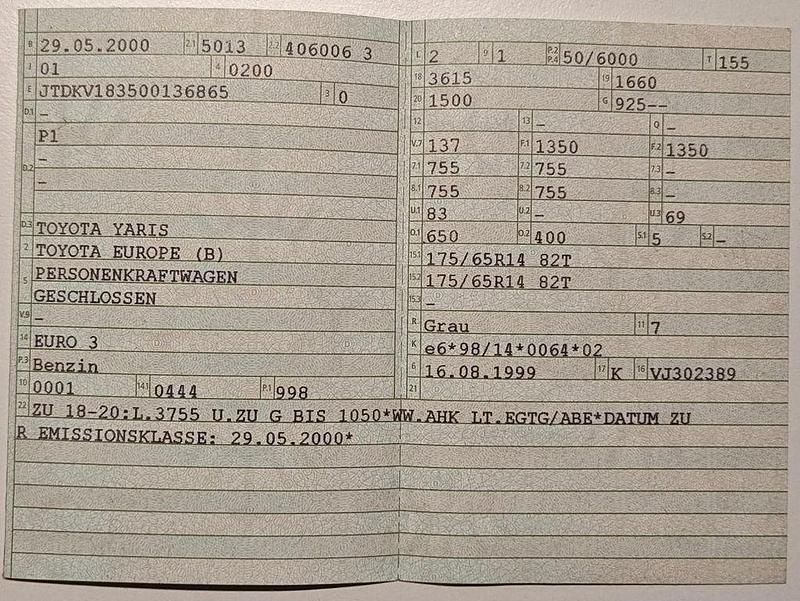 B 29.05.2000 2.1 5013 2.2 406006 3
J 01 4 0200
E JTDKV183500136865 3 0
D.1 –
P1
D.2 –
–
D.3 TOYOTA YARIS
2 TOYOTA EUROPE (B)
5 PERSONENKRAFTWAGEN
GESCHLOSSEN
V.9 –
14 EURO 3
P.3 Benzin
10 0001 14.1 0444 P.1 998
L 2 9 1 P.2 P.4 50/6000 T 155
18 3615 19 1660
20 1500 G 925--
12 13 – Q –
V.7 137 F.1 1350 F.2 1350
7.1 755 7.2 755 7.3 –
8.1 755 8.2 755 8.3 –
U.1 83 U.2 – U.3 69
O.1 650 O.2 400 S.1 5 S.2 –
15.1 175/65R14 82T
15.2 175/65R14 82T
15.3 –
R Grau 11 7
K e6*98/14*0064*02
6 16.08.1999 17 K 16 VJ302389
21
22 ZU 18-20:L.3755 U.ZU G BIS 1050*WW.AHK LT.EGTG/ABE*DATUM ZU
R EMISSIONSKLASSE: 29.05.2000*